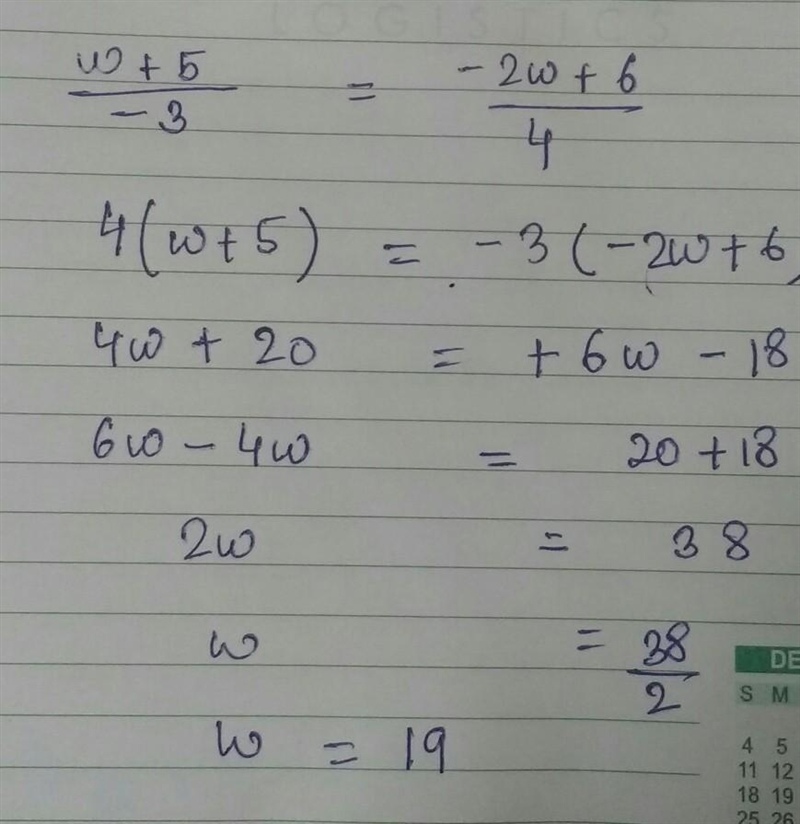 LOGISTICS
w + 5 / -3 = -2w + 6 / 4
4(w + 5) = -3(-2w + 6)
4w + 20 = +6w - 18
6w - 4w = 20 + 18
2w = 38
w = 38 / 2
w = 19
DE
S M
4 5
11 12
18 19
25 26